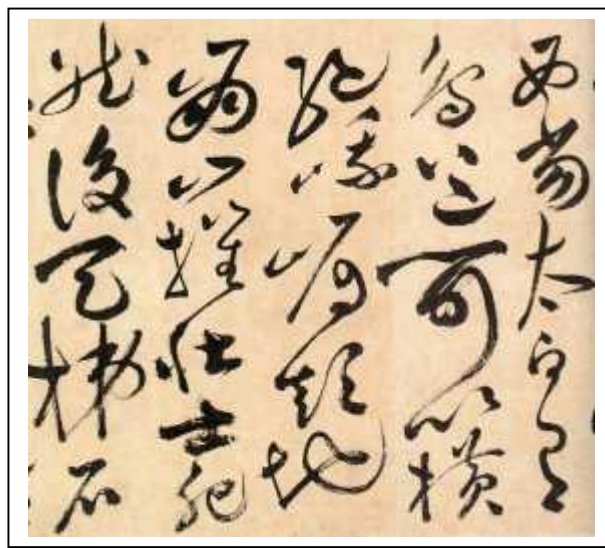 西當太白有
鳥道可以橫
絕峨嵋顛地
崩山摧壯士死
然後天梯石